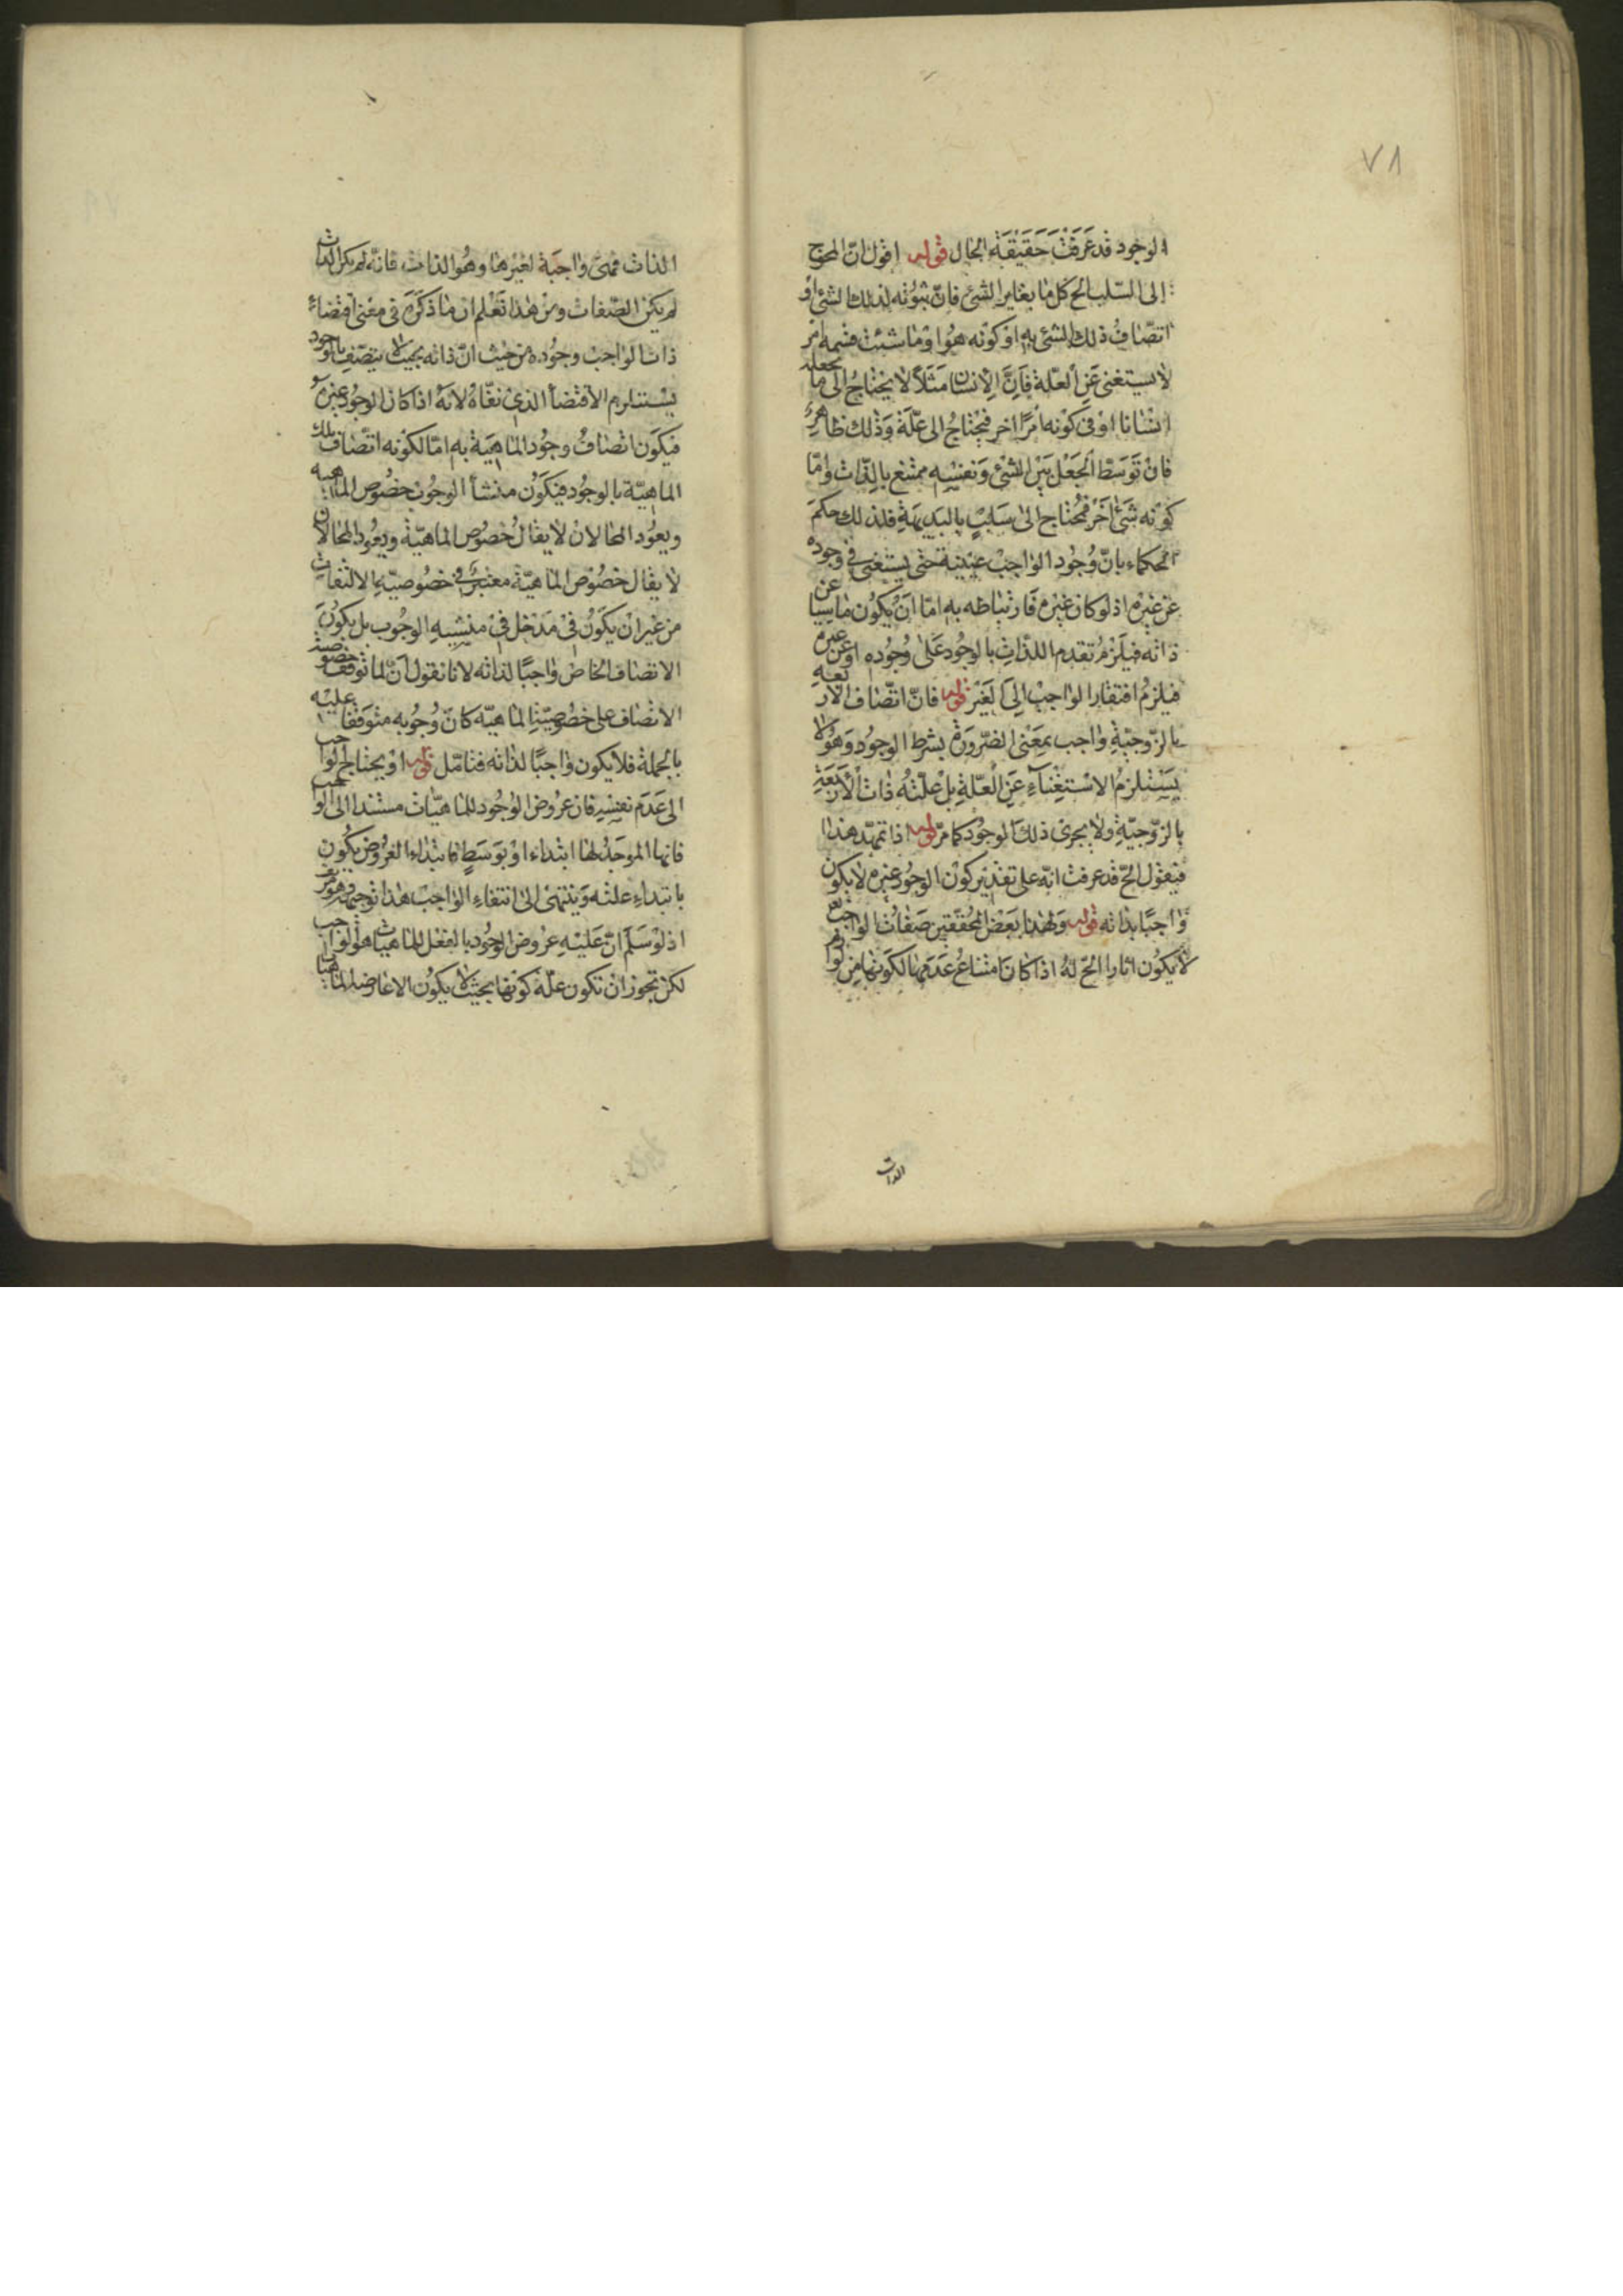 ٧٨
الوجود قد عرفت حقيقة الحال قوله اقول ان المحوج
إلى السلب الخ كل ما يغاير الشئ فان ثبوته لذلك الشئ او
اتصاف ذلك الشئ به او كونه هو او ما شئت فسمه امر
لا يستغنى عن العلة فان الانسان مثلا لا يحتاج الى ما يجعله
انسانا او فى كونه امرا اخر فيحتاج الى علة وذلك ظاهر
فان توسط الجعل بين الشئ ونفسه ممتنع بالذات واما
كونه شئ آخر فمحتاج الى سلب بالبديهة فلذلك حكم
الحكماء بان وجود الواجب عينية حتى يستغنى فى وجوده
عن غيره اذ لو كان غيره فارتباطه به اما ان يكون ناشيا عن
ذاته فيلزم تقدم الذات بالوجود على وجوده او عن غيره
فيلزم افتقار الواجب الى الغير قوله فان اتصاف الاربعة
بالزوجية واجب بمعنى الضرورة بشرط الوجود وهو لا
يستلزم الاستغناء عن العلة بل علته ذات الأربعة
بالزوجية ولا يجرى ذلك الوجود كما مر قوله اذا تمهد هذا
فيقول الخ قد عرفت انه على تقدير كون الوجود غيره لا يكون
واجبا بذاته قوله ولهذا بعض المحققين صفات الواجب
لا يكون اثارا الخ له اذا كان امتناع عدمها لكونها من لوازم
الذات
الذات فهى واجبة لغيرها وهو الذات فانه لم يكن الذات
لم يكن الصفات ومن هذا تعلم ان ما ذكره فى معنى اقتضاء
ذات الواجب وجوده من حيث ان ذاته بحيث لا يتصف بالوجود
يستلزم الاقتضأ الذى نفاه لانه اذا كان الوجود غيره
فيكون اتصاف وجود الماهية به اما لكونه اتصاف تلك
الماهية بالوجود فيكون منشأ الوجوب خصوص الماهية
ويعود المحالان لا يقال خصوص الماهية ويعود المحالان
لا يقال خصوص الماهية معتبر فى خصوصية الالتفات
من غير ان يكون فى مدخل فى منشيه الوجوب بل يكون
الاتصاف الخاص واجبا لذاته لانا نقول ان لما توقف خصوصية
الاتصاف على خصوصية الماهية كان وجوبه متوقفا عليه
بالجملة فلا يكون واجبا لذاته فتامل قوله او يحتاج الواجب
الى عدم نفسه فان عروض الوجود للماهيات مستند الى الواجب
فانها الموجد لها ابتداء او بوسط فابتداء العروض يكون
بابتداء علته وينتهى الى انتفاء الواجب هذا توجيهه وهو مزيف
اذ لو سلم ان علية عروض الوجود بالفعل للماهيات هو الواجب
لكن يجوز ان تكون علة كونها بحيث لا يكون الا عارضا للماهيات